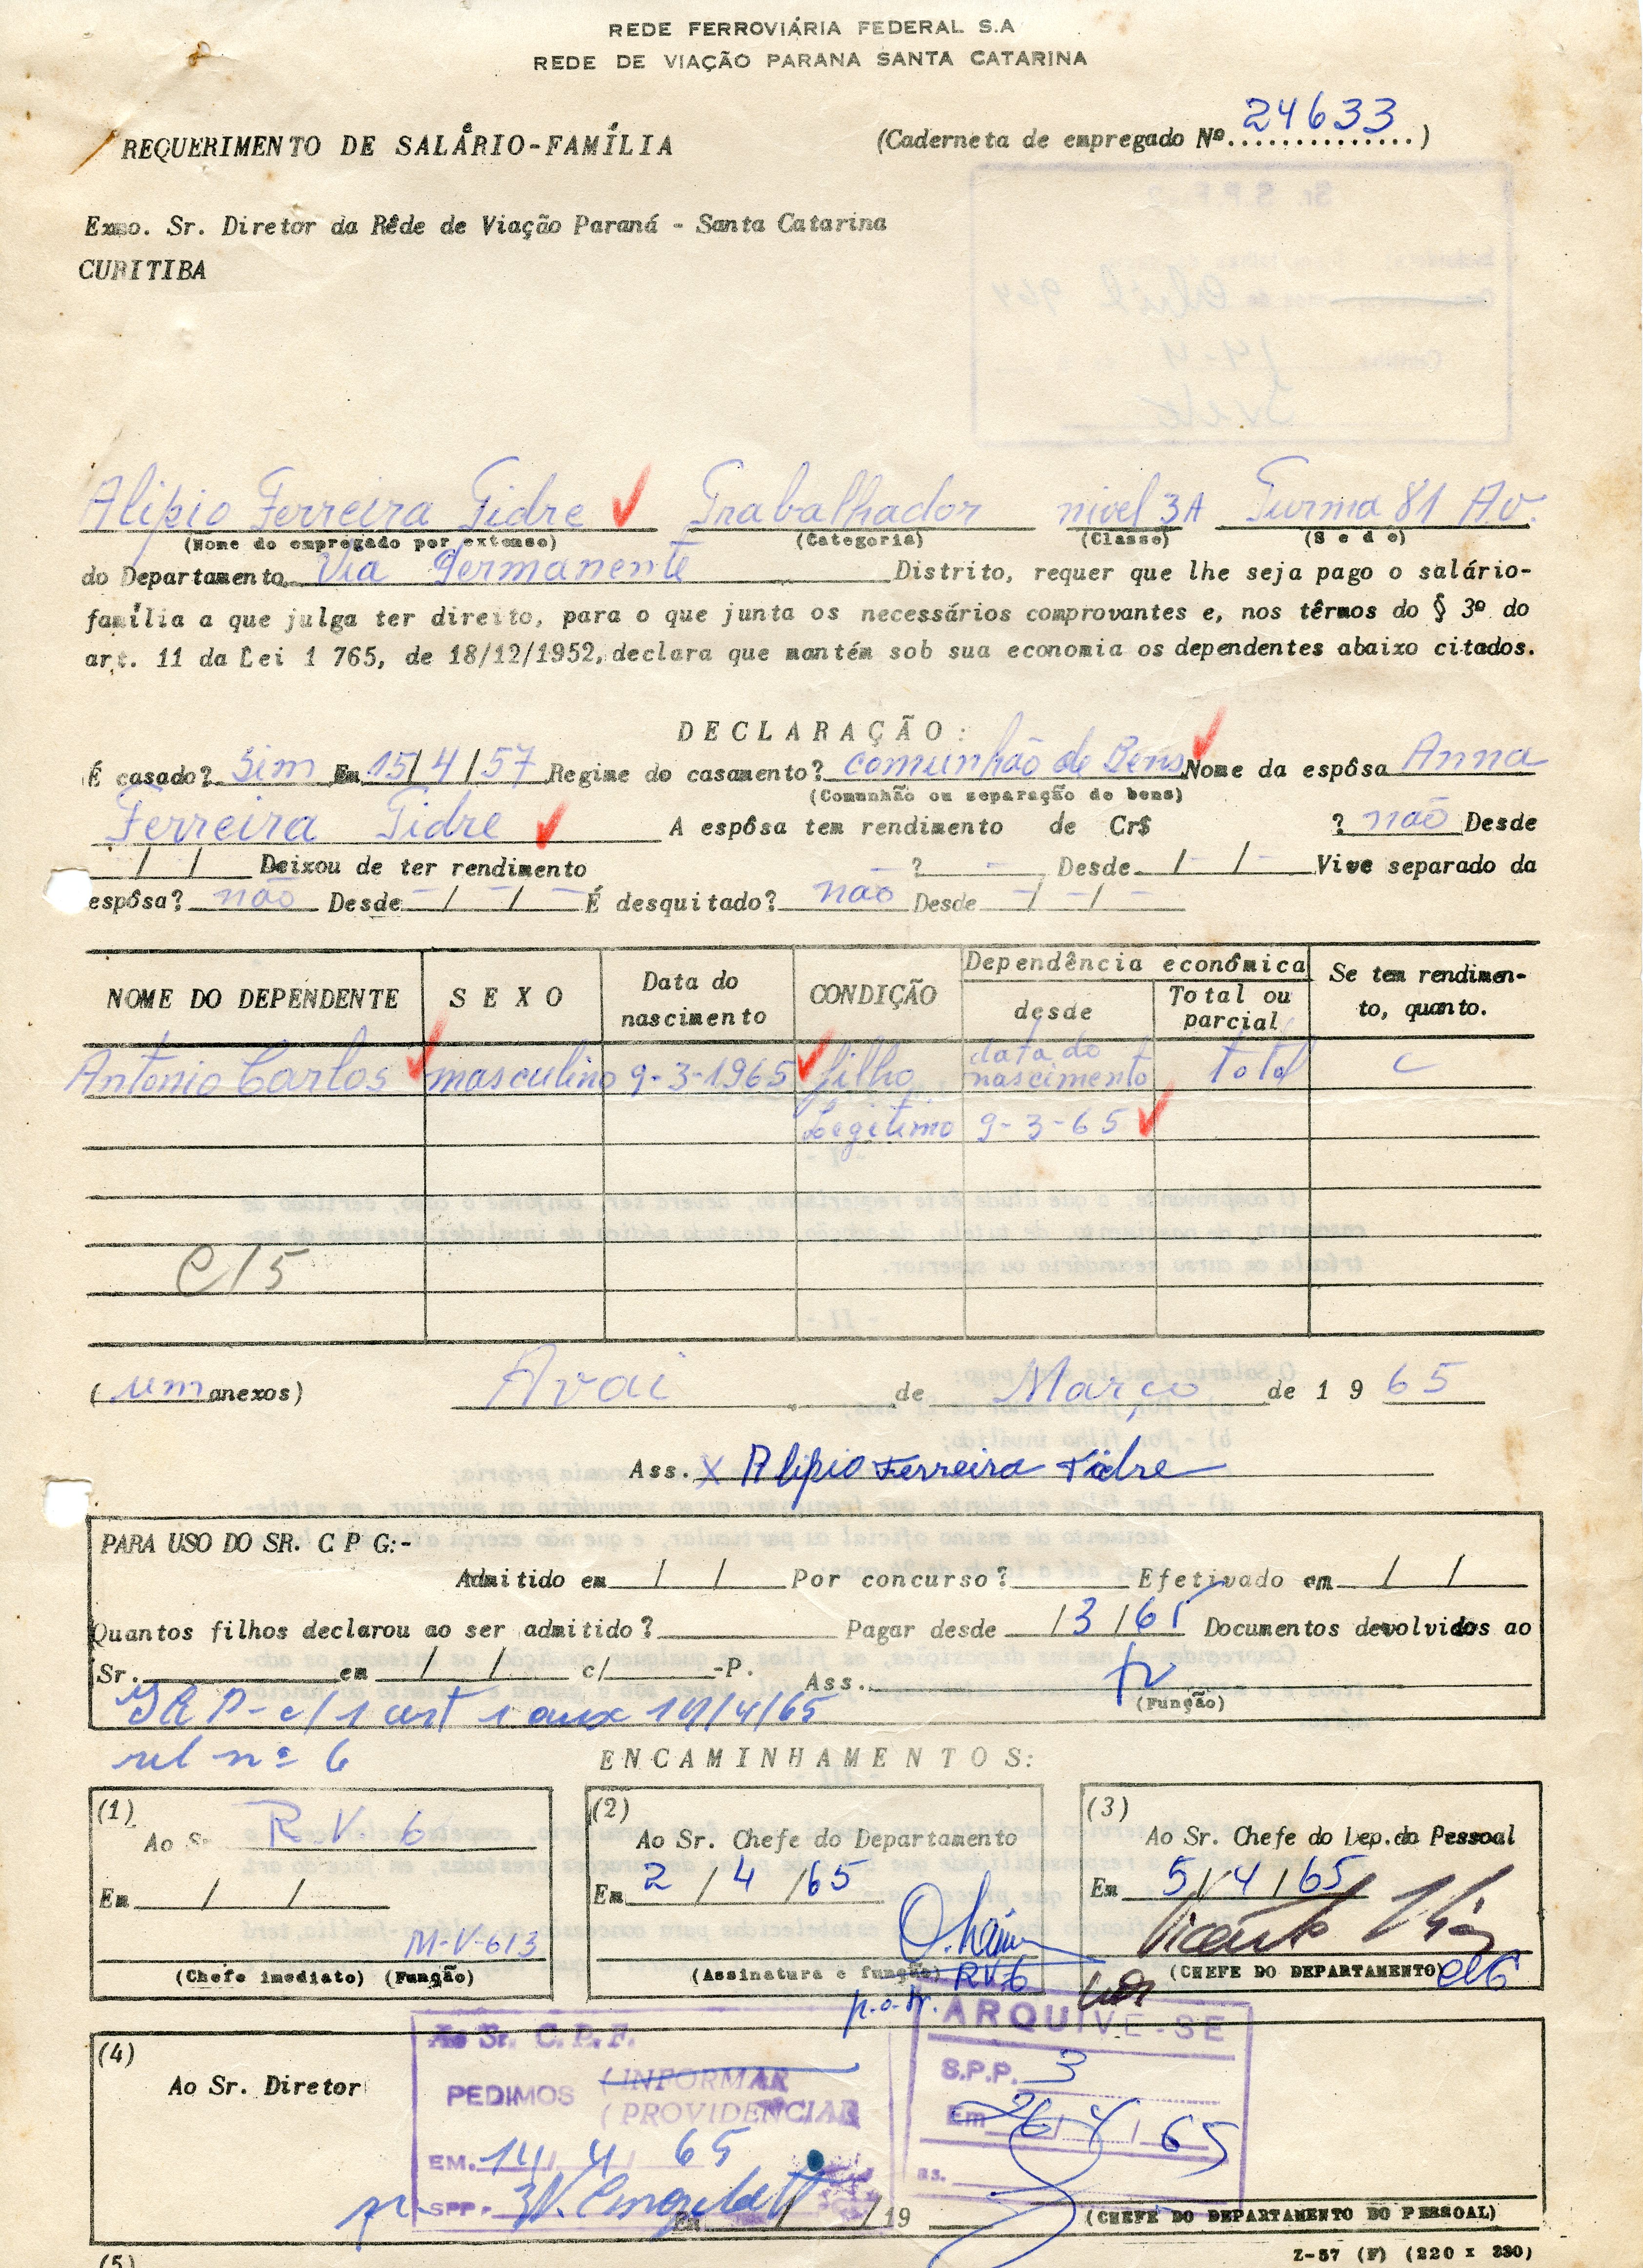 REDE FERROVIÁRIA FEDERAL S.A
REDE DE VIAÇÃO PARANA SANTA CATARINA
REQUERIMENTO DE SALÁRIO-FAMÍLIA
(Caderneta de empregado Nº 24633)
Exmo. Sr. Diretor da Rêde de Viação Paraná - Santa Catarina
CURITIBA
Alipio Ferreira Tidre Trabalhador nivel 3A Turma 81 Av.
(Nome do empregado por extenso) (Categoria) (Classe) (Sede)
do Departamento Via Permanente Distrito, requer que lhe seja pago o salário-
família a que julga ter direito, para o que junta os necessários comprovantes e, nos têrmos do § 3º do
art. 11 da Lei 1 765, de 18/12/1952, declara que mantém sob sua economia os dependentes abaixo citados.
DECLARAÇÃO:
É casado? Sim Em 15/4/57 Regime do casamento? comunhão de Bens Nome da espôsa Anna
(Comunhão ou separação de bens)
Ferreira Tidre A espôsa tem rendimento de Cr$ ? não Desde
/ / Deixou de ter rendimento ? - Desde - / - / - Vive separado da
espôsa? não Desde - / - / - É desquitado? não Desde - / - / -
NOME DO DEPENDENTE SEXO Data do nascimento CONDIÇÃO Dependência econômica desde Total ou parcial Se tem rendimento, quanto.
Antonio Carlos masculino 9-3-1965 filho data do nascimento total
Legitimo 9-3-65
C/5
(um anexos) Avai de Março de 1965
Ass. X Alipio Ferreira Tidre
PARA USO DO SR. C P G:-
Admitido em / / Por concurso? Efetivado em / /
Quantos filhos declarou ao ser admitido? Pagar desde /3/65 Documentos devolvidos ao
Sr. em / / c/ -P. Ass.
(Função)
c/1 cert 1 aux /4/65
rel nº 6
ENCAMINHAMENTOS:
(1)
Ao Sr R.V. 6
Em / /
M-V-613
(Chefe imediato) (Função)
(2)
Ao Sr. Chefe do Departamento
Em 2/4/65
(Assinatura e função) RV6
(3)
Ao Sr. Chefe do Dep.do Pessoal
Em 5/4/65
Vicente
(CHEFE DO DEPARTAMENTO)
(4)
Ao Sr. Diretor
Ao Sr. C.P.F.
PEDIMOS (INFORMAR
(PROVIDENCIAR
EM. 14 4 65
SPP- 3
ARQUIVE-SE
S.P.P. 3
Em 26/4/65
as.
Em / /19
(CHEFE DO DEPARTAMENTO DO PESSOAL)
(5)
Z-57 (F) (220 x 330)